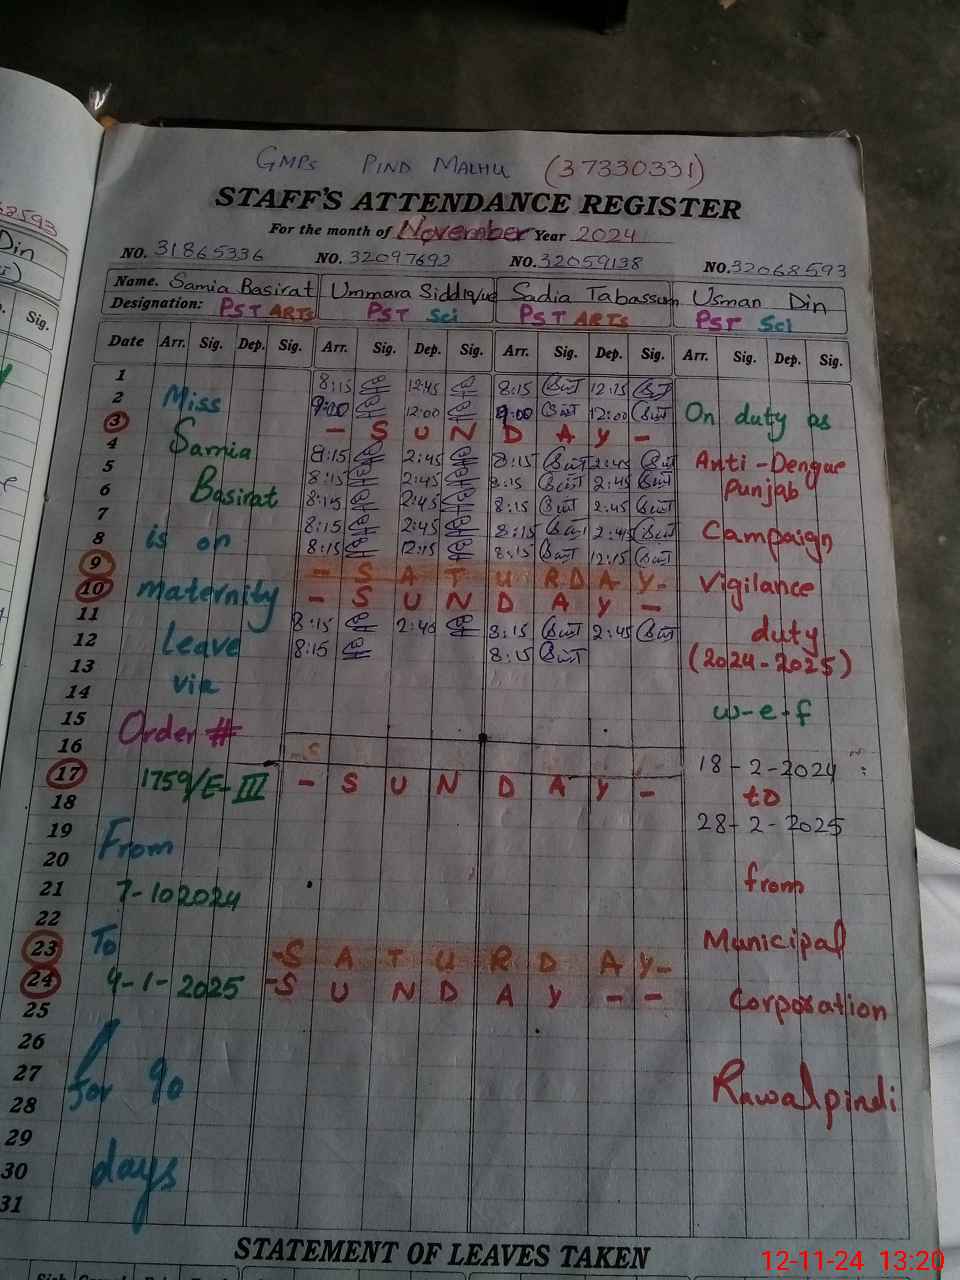 GMPS PIND MALHU (37330331)
STAFF'S ATTENDANCE REGISTER
For the month of November Year 2024
NO. 31865336 NO. 32097692 NO. 32059138 NO. 32068593
Name. Samia Basirat Ummara Siddique Sadia Tabassum Usman Din
Designation: PST ARTS PST Sci PST ARTS PST Sci
Date Arr. Sig. Dep. Sig. Arr. Sig. Dep. Sig. Arr. Sig. Dep. Sig. Arr. Sig. Dep. Sig.
1 8:15 12:45 8:15 12:15
2 Miss 9:00 12:00 9:00 12:00 On duty as
3 - S U N D A Y -
4 Samia 8:15 2:45 8:15 2:45 Anti-Dengue
5 8:15 2:45 8:15 2:45 Punjab
6 Basirat 8:15 2:45 8:15 2:45
7 8:15 2:45 8:15 2:45 Campaign
8 is on 8:15 12:15 8:15 12:15
9 - S A T U R D A Y - Vigilance
10 maternity - S U N D A Y -
11 8:15 2:45 8:15 2:45 duty
12 Leave 8:15 8:15 (2024-2025)
13 via
14 w-e-f
15 Order #
16 18-2-2024
17 1759/E-III - S U N D A Y - to
18 28-2-2025
19 From
20 from
21 7-102024
22 Municipal
23 To -S A T U R D A Y-
24 4-1-2025 -S U N D A Y - -
25 Corporation
26
27 for 90
28 Rawalpindi
29
30 days
31
STATEMENT OF LEAVES TAKEN
62593
Din
Sig.
12-11-24 13:20